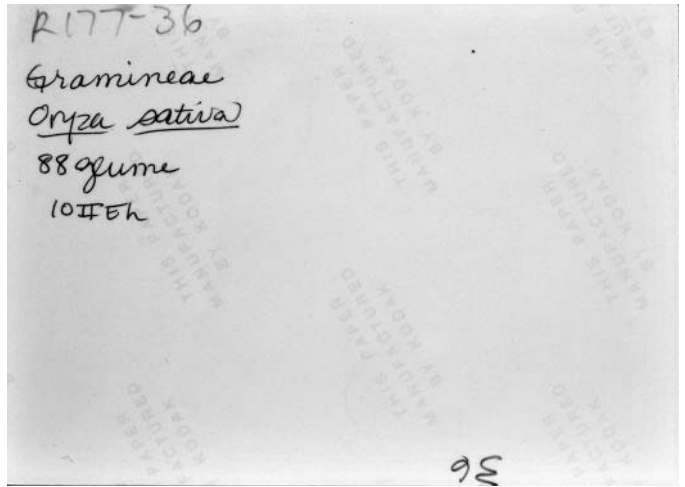 R177-36
Gramineae
Oryza sativa
88 glume
10IIEh
36
THIS PAPER
MANUFACTURED
BY KODAK